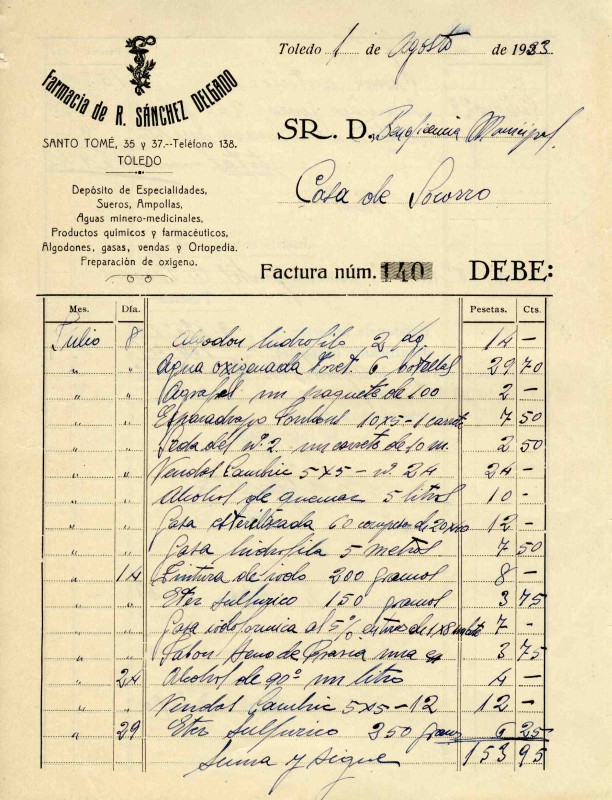 Farmacia de R. SÁNCHEZ DELGADO
SANTO TOMÉ, 35 y 37.--Teléfono 138.
TOLEDO
Depósito de Especialidades,
Sueros, Ampollas,
Aguas minero-medicinales,
Productos químicos y farmacéuticos,
Algodones, gasas, vendas y Ortopedia.
Preparación de oxígeno.
Toledo 1 de Agosto de 1933
SR. D. Beneficencia Municipal
Casa de Socorro
Factura núm. 140 DEBE:
Mes. Día. Pesetas. Cts.
Julio 8 Algodon hidrofilo 2 Kg. 14 —
" " Agua oxigenada Foret. 6 botellas 29 70
" " Agrafes un paquete de 100 2 —
" " Esparadrapo 10x5-1 carrete 7 50
" " Seda del nº 2 un carrete de 10 m. 2 50
" " Vendas Cambric 5x5 - nº 24 24 —
" " Alcohol de quemar 5 litros 10 —
" " Gasa esterilizada 60 de 12 —
" " Gasa hidrofila 5 metros 7 50
" 14 Tintura de iodo 200 gramos 8 —
" " Eter sulfurico 150 gramos 3 75
" " Gasa iodoformica al 5% de 7 —
" " Jabon Heno de Pravia una 3 75
" 24 Alcohol de 90º un litro 4 —
" " Vendas Cambric 5x5-12 12 —
" 29 Eter sulfurico 250 gramos 6 25
Suma y sigue 153 95